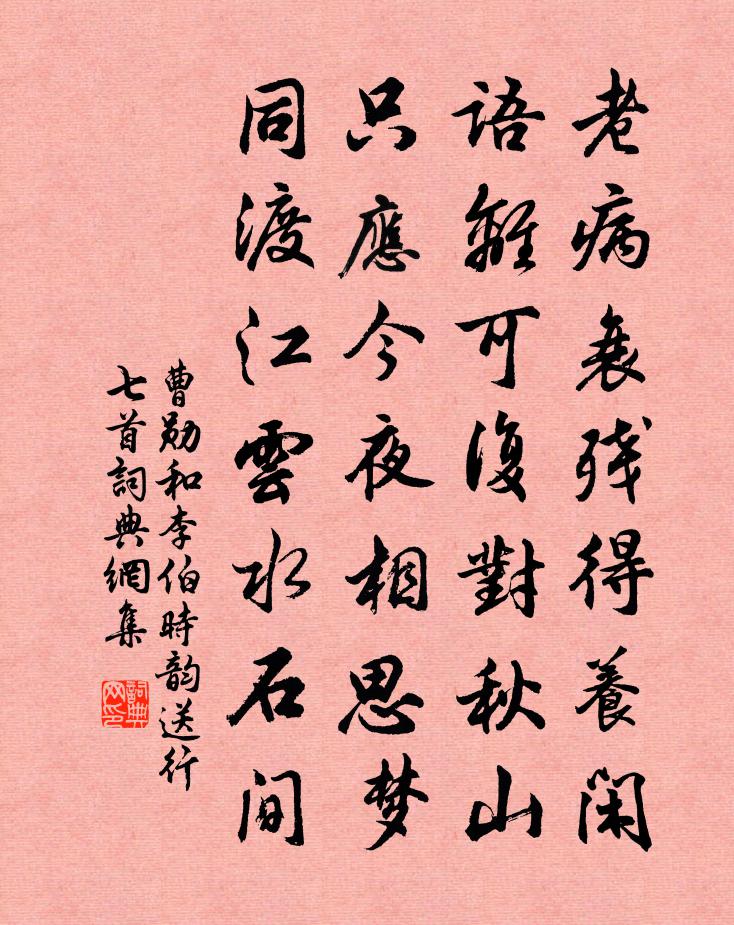 老病衰残得養闲
語離可復對秋山
只應今夜相思梦
同渡江雲水石間
曹勋和李伯時韵送行
七首詞典網集
詞典网印